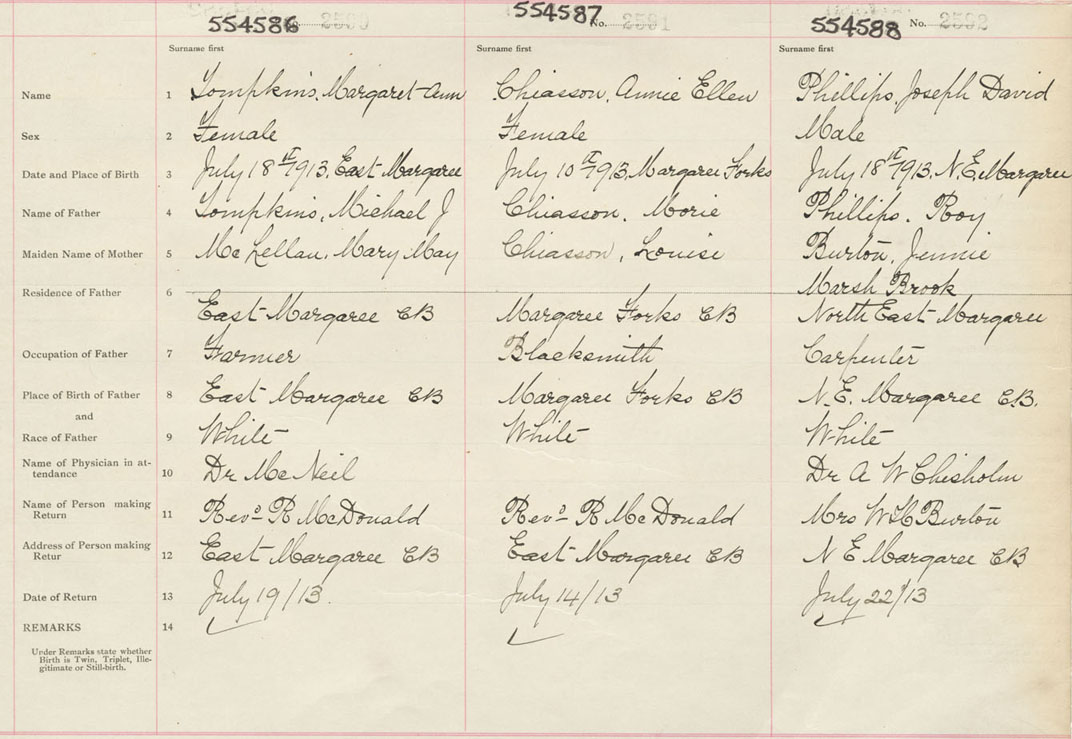 554586 2590
554587 No. 2591
554588 No. 2592
Surname first Surname first Surname first
Name 1 Tompkins, Margaret-Ann Chiasson, Annie Ellen Phillips, Joseph David
Sex 2 Female Female Male
Date and Place of Birth 3 July 18th 1913, East-Margaree July 10th 1913, Margaree Forks July 18th 1913, N.E. Margaree
Name of Father 4 Tompkins, Michael J Chiasson, Morie Phillips. Roy
Maiden Name of Mother 5 McLellan, Mary May Chiasson, Louise Burton, Jennie
Marsh Brook
Residence of Father 6 East-Margaree CB Margaree Forks CB North East-Margaree
Occupation of Father 7 Farmer Blacksmith Carpenter
Place of Birth of Father 8 East-Margaree CB Margaree Forks CB N.E. Margaree C.B.
and
Race of Father 9 White White White
Name of Physician in at-
tendance 10 Dr McNeil Dr A W Chisholm
Name of Person making
Return 11 Revd R McDonald Revd R McDonald Mrs W H Burton
Address of Person making
Retur 12 East-Margaree CB East-Margaree CB N E Margaree CB
Date of Return 13 July 19/13. July 14/13 July 22/13
REMARKS 14
Under Remarks state whether
Birth is Twin, Triplet, Ille-
gitimate or Still-birth.